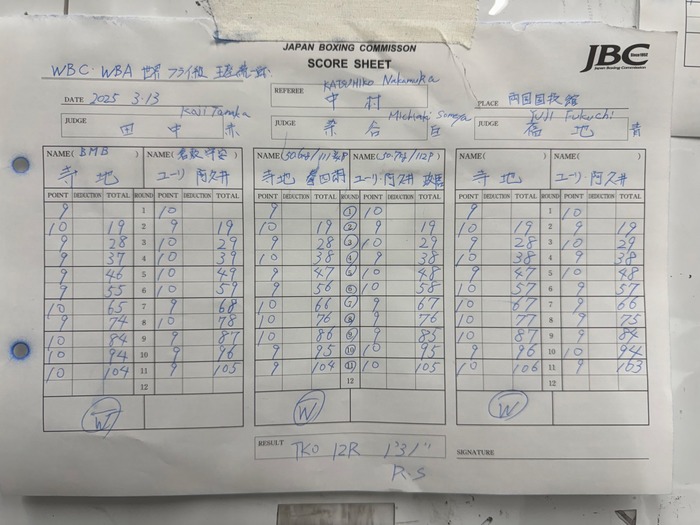 JAPAN BOXING COMMISSON
SCORE SHEET
JBC
Since1952
Japan Boxing Commission
WBC・WBA 世界 フライ級 王座統一戦
REFEREE KATSUHIKO Nakamura
中村
DATE 2025 3.13
PLACE 両国国技館
JUDGE Koji Tanaka
田中 赤
JUDGE
白
JUDGE Yuji Fukuchi
福地 青
NAME( BMB ) NAME( 倉敷守安 )
寺地 ユーリ 阿久井
NAME( ) NAME( )
寺地 拳四朗 ユーリ・阿久井 政悟
NAME( ) NAME( )
寺地 ユーリ・阿久井
POINT DEDUCTION TOTAL ROUND POINT DEDUCTION TOTAL
9 1 10
10 19 2 9 19
9 28 3 10 29
9 37 4 10 39
9 46 5 10 49
9 55 6 10 59
10 65 7 9 68
9 74 8 10 78
10 84 9 9 87
10 94 10 9 96
10 104 11 9 105
12
W
POINT DEDUCTION TOTAL ROUND POINT DEDUCTION TOTAL
9 1 10
10 19 2 9 19
9 28 3 10 29
10 38 4 9 38
9 47 5 10 48
9 56 6 10 58
10 66 7 9 67
10 76 8 9 76
10 86 9 9 85
9 95 10 10 95
9 104 11 10 105
12
W
POINT DEDUCTION TOTAL ROUND POINT DEDUCTION TOTAL
9 1 10
10 19 2 9 19
9 28 3 10 29
10 38 4 9 38
9 47 5 10 48
10 57 6 9 57
10 67 7 9 66
10 77 8 9 75
10 87 9 9 84
9 96 10 10 94
10 106 11 9 103
12
W
RESULT TKO 12R 1'31"
R.S
SIGNATURE